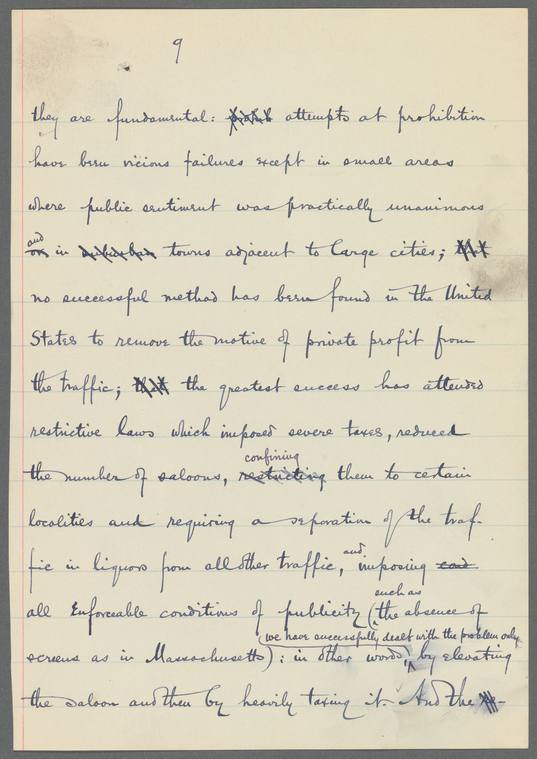 9
they are fundamental: attempts at prohibition
have been vicious failures except in small areas
where public sentiment was practically unanimous
and
or in suburban towns adjacent to large cities; that
no successful method has been found in the United
States to remove the motive of private profit from
the traffic; that the greatest success has attended
restrictive laws which imposed severe taxes, reduced
confining
the number of saloons, restricting them to certain
localities and requiring a separation of the traf-
fic in liquors from all other traffic, and imposing
such as
all enforceable conditions of publicity (the absence of
we have successfully dealt with the problem only
screens as in Massachusetts): in other words, by elevating
the saloon and then by heavily taxing it. And the